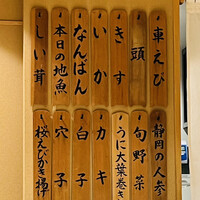 車えび
頭
きす
いか
なんばん
本日の地魚
しい茸
静岡の人参
旬野菜
うに大葉巻き
カキ
白子
穴子
桜えびかき揚げ